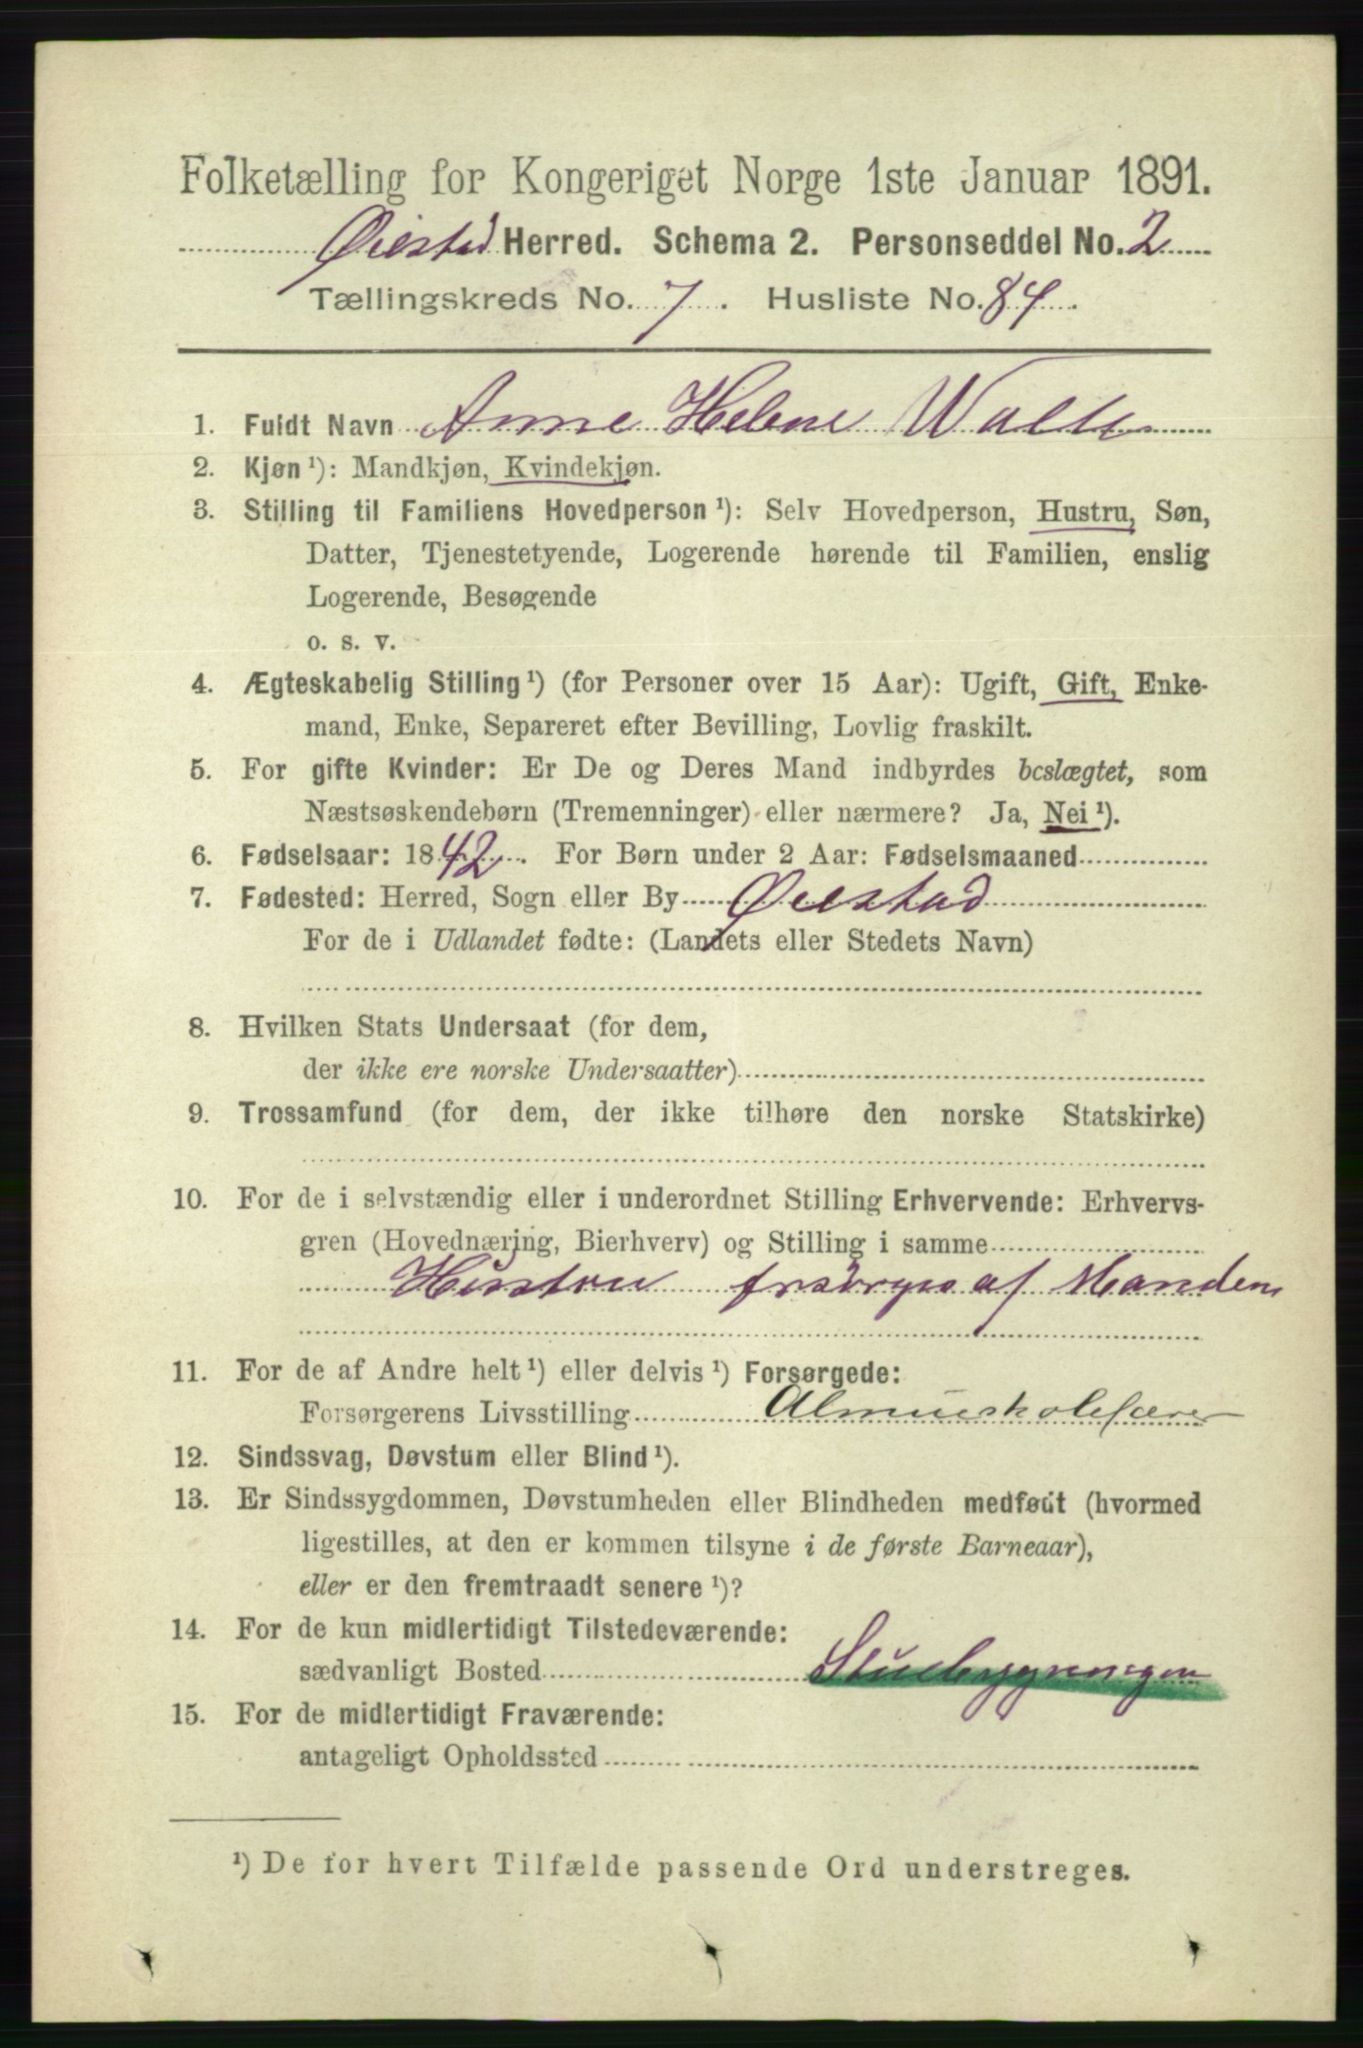 Folketælling for Kongeriget Norge 1ste Januar 1891.
Øiestad Herred. Schema 2. Personseddel No. 2
Tællingskreds No. 7. Husliste No. 84.
1. Fuldt Navn Anne Helene
2. Kjøn ¹): Mandkjøn, Kvindekjøn.
3. Stilling til Familiens Hovedperson ¹): Selv Hovedperson, Hustru, Søn,
Datter, Tjenestetyende, Logerende hørende til Familien, enslig
Logerende, Besøgende
o. s. v.
4. Ægteskabelig Stilling ¹) (for Personer over 15 Aar): Ugift, Gift, Enke-
mand, Enke, Separeret efter Bevilling, Lovlig fraskilt.
5. For gifte Kvinder: Er De og Deres Mand indbyrdes beslægtet, som
Næstsøskendebørn (Tremenninger) eller nærmere? Ja, Nei ¹).
6. Fødselsaar: 1842. For Børn under 2 Aar: Fødselsmaaned
7. Fødested: Herred, Sogn eller By Øiestad
For de i Udlandet fødte: (Landets eller Stedets Navn)
8. Hvilken Stats Undersaat (for dem,
der ikke ere norske Undersaatter)
9. Trossamfund (for dem, der ikke tilhøre den norske Statskirke)
10. For de i selvstændig eller i underordnet Stilling Erhvervende: Erhvervs-
gren (Hovednæring, Bierhverv) og Stilling i samme
Hustru forsørges af Manden
11. For de af Andre helt ¹) eller delvis ¹) Forsørgede:
Forsørgerens Livsstilling Almueskolelærer
12. Sindssvag, Døvstum eller Blind ¹).
13. Er Sindssygdommen, Døvstumheden eller Blindheden medfødt (hvormed
ligestilles, at den er kommen tilsyne i de første Barneaar),
eller er den fremtraadt senere ¹)?
14. For de kun midlertidigt Tilstedeværende:
sædvanligt Bosted Stuebygningen
15. For de midlertidigt Fraværende:
antageligt Opholdssted
¹) De for hvert Tilfælde passende Ord understreges.